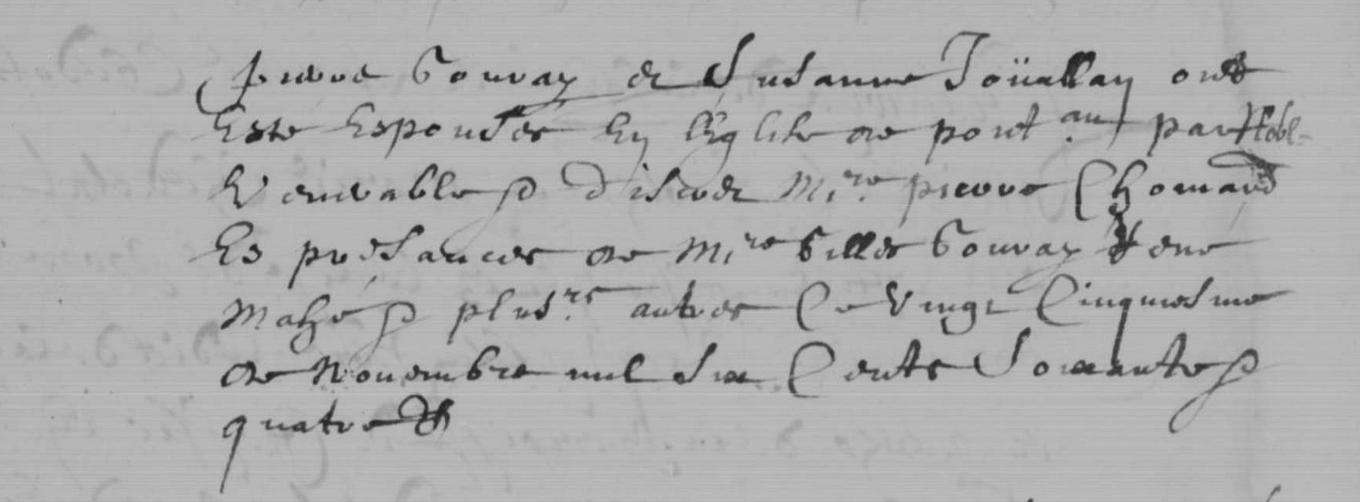 Pierre Gouray et Susanne Joüallan ont
Este Espouses En leglise de pont par noble
Et venerable & discret Mire pierre Chomard
Es presances de Mire Gilles Gouray Rene
Mahe & plusrs autres Ce vingt Cinquiesme
de Novembre mil six Cents Soixante &
quatre